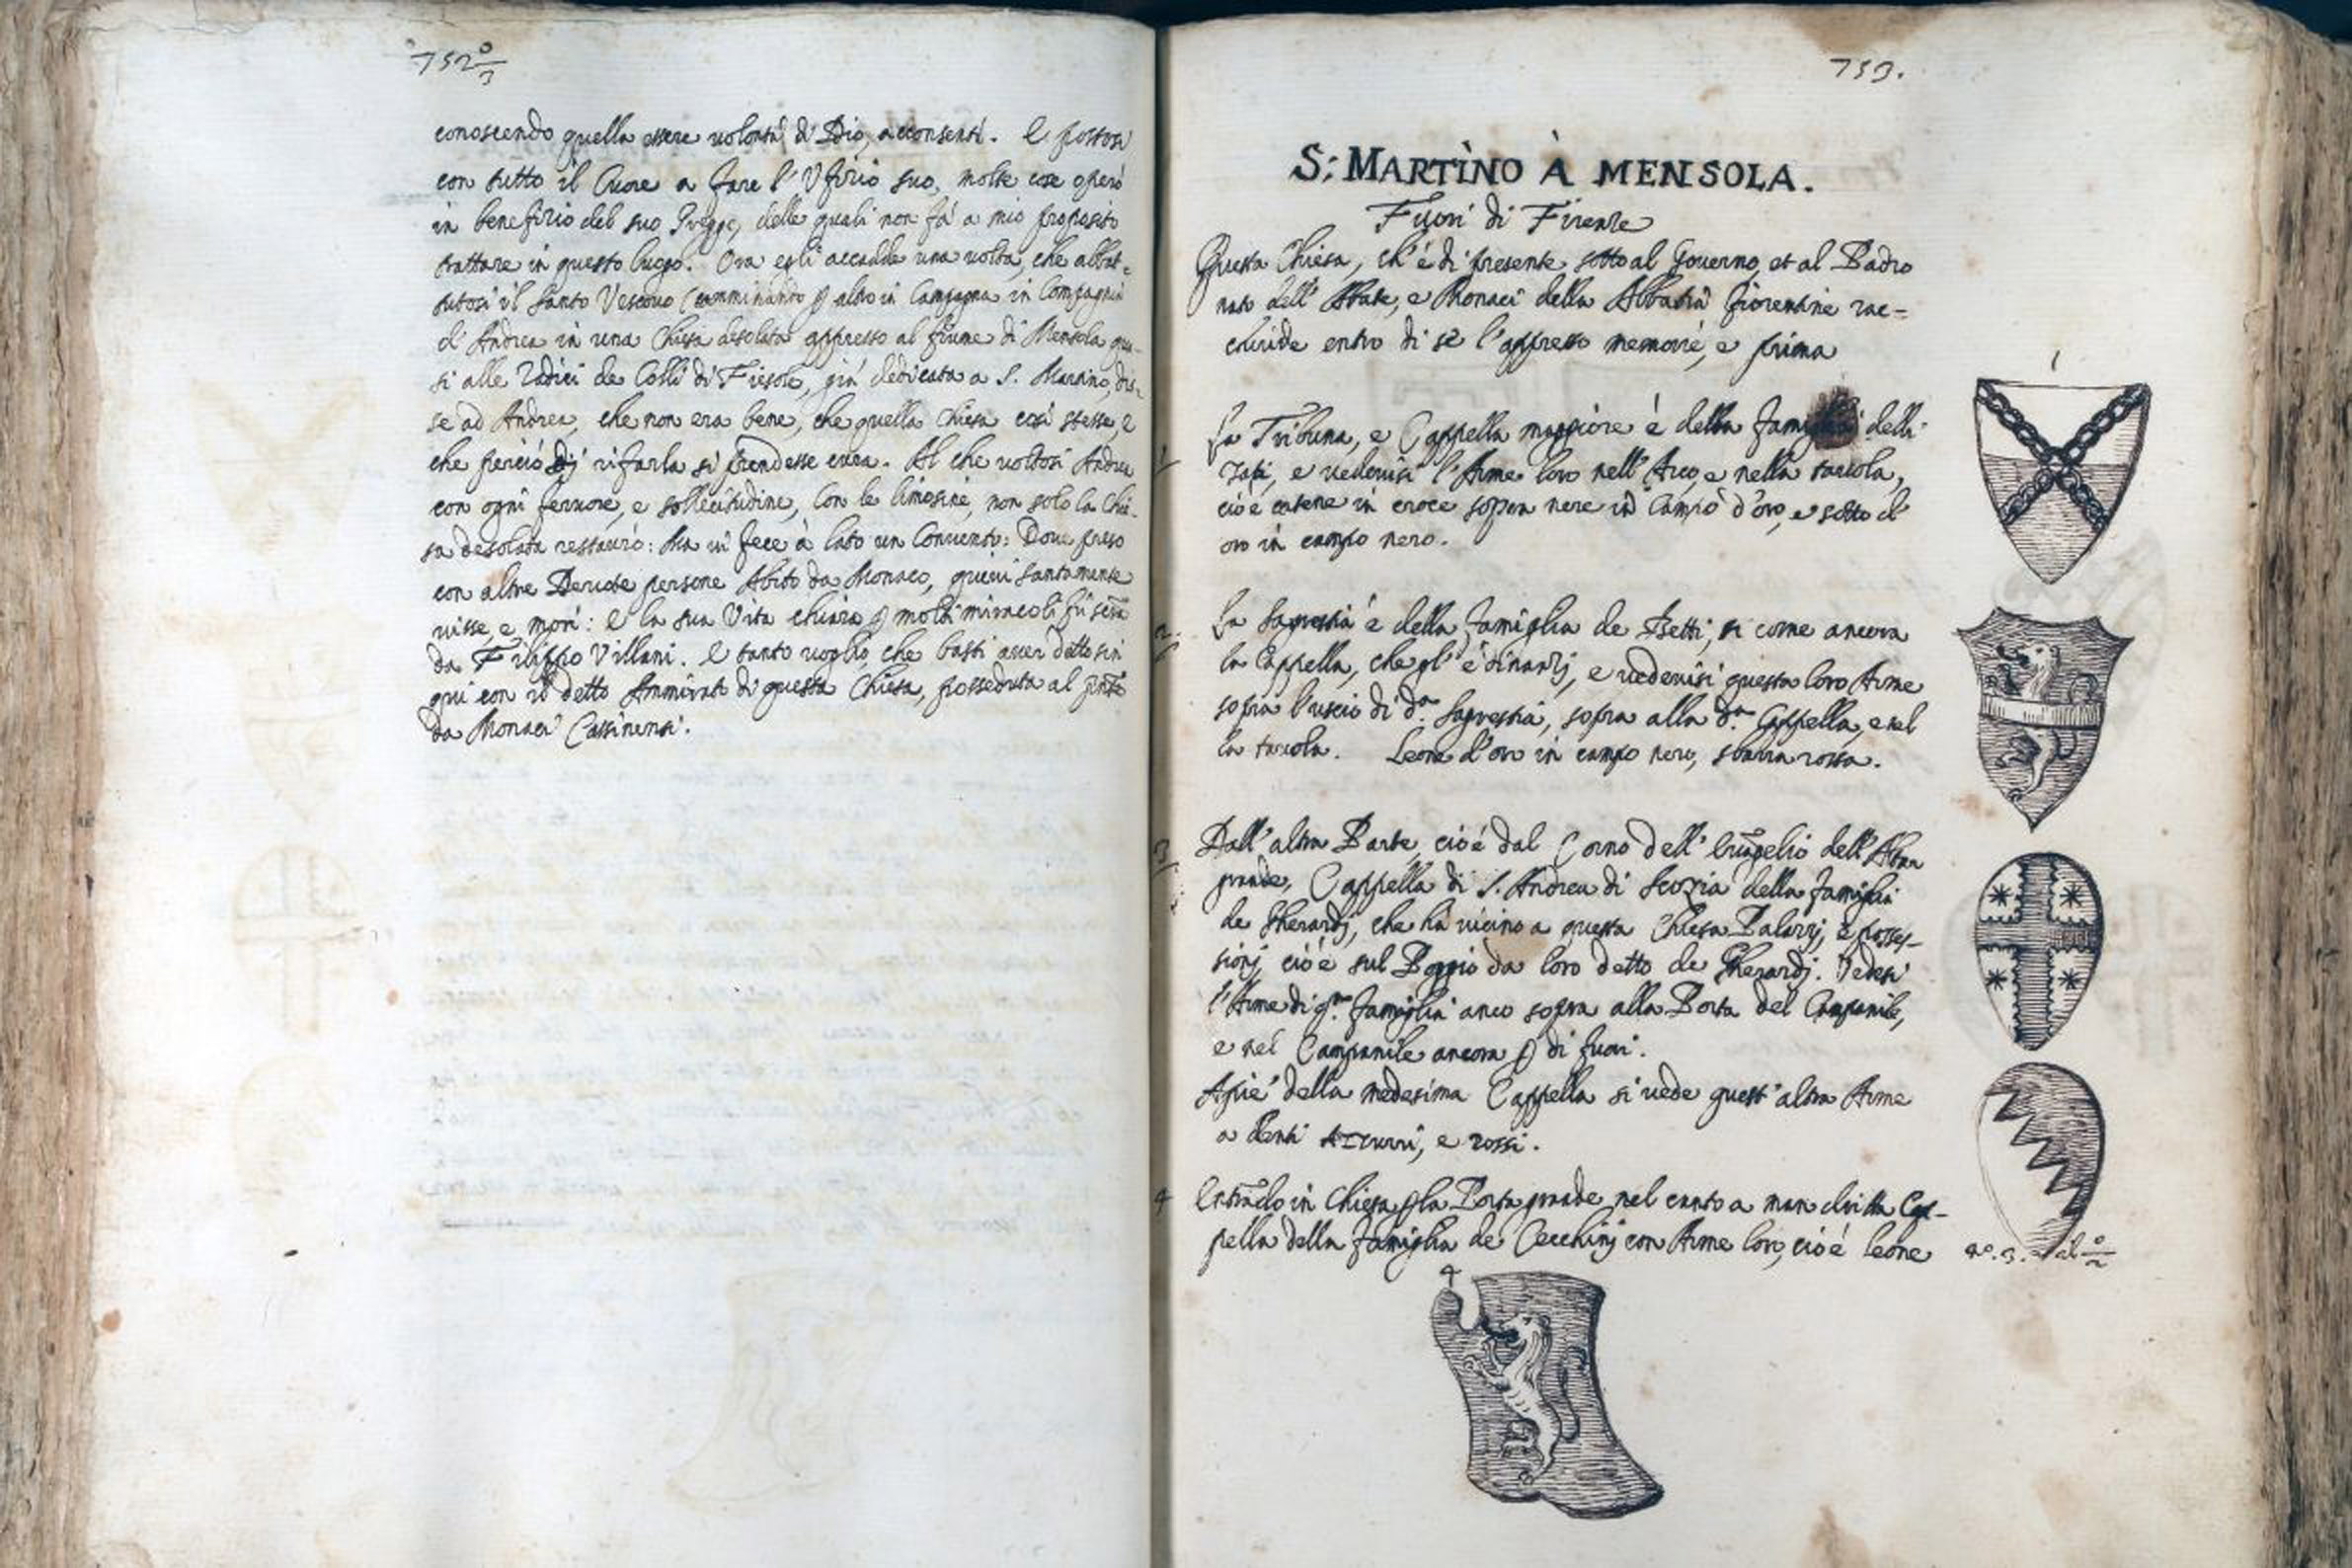 752 0/3
conoscendo quella essere volontà di Dio, acconsentì. E postosi
con tutto il Cuore a fare l'Ufizio suo, molte cose operò
in benefizio del suo Gregge, delle quali non fà a mio proposito
trattare in questo luogo. Ora egli accadde una volta, che abbat-
tutosi il Santo Vescovo (camminando p altro in Campagna in Compagnia
d'Andrea in una Chiesa desolata appresso al fiume di Mensola qua-
si alle Radici de Colli di Fiesole, già dedicata a S. Martino, dis-
se ad Andrea, che non era bene, che quella Chiesa così stesse, e
che perciò di rifarla si prendesse cura. Al che voltosi Andrea
con ogni fervore, e sollecitudine, con le limosine, non solo la Chie-
sa desolata restaurò: Ma vi fece à lato un Convento: Dove preso
con altre Devote persone Abito da Monaco, quivi santamente
visse, e morì: E la sua Vita chiara p molti miracoli fù
da Filippo Villani. E tanto voglio, che basti aver detto sin
qui con il detto Ammirati di questa Chiesa, posseduta al pnte
da Monaci Cassinensi.
753.
S: MARTINO À MENSOLA.
Fuori di Firenze
Questa Chiesa, ch'è di presente sotto al Governo, et al Padro
nato dell'Abate, e Monaci della Abbadia fiorentina rac-
chiude entro di sè l'appresso memorie, e prima
1
1 La Tribuna, e Cappella maggiore è della famiglia delli
Zati, e vedevisi l'Arme loro nell'Arco, e nella tavola,
cioè catene in croce sopra nere in Campo d'oro, e sotto d'
oro in campo nero.
2. La Sagrestia è della famiglia de Betti, si come ancora
la Cappella, che gl'è dinanzi, e vedevisi questa loro Arme
sopra l'uscio di da. Sagrestia, sopra alla da. Cappella, e nel
la tavola. Leone d'oro in campo nero, sbarra rossa.
3 Dall'altra Parte, cioè dal Corno dell' dell'Altar
grande, Cappella di S. Andrea di Scozia della famiglia
de Gherardi, che hà vicino a questa Chiesa Palazzi, e posses-
sioni, cioè sul Poggio da loro detto de Gherardi. Vedesi
l'Arme di qta. famiglia anco sopra alla Porta del Campanile,
e nel Campanile ancora p di fuori.
Apiè della medesima Cappella si vede quest'altra Arme
a denti azzurri, e rossi.
4 Entrado in Chiesa p la Porta grande nel canto a man diritta Cap-
pella della famiglia de Cecchini con Arme loro, cioè leone
no. 3. al 0/2
4